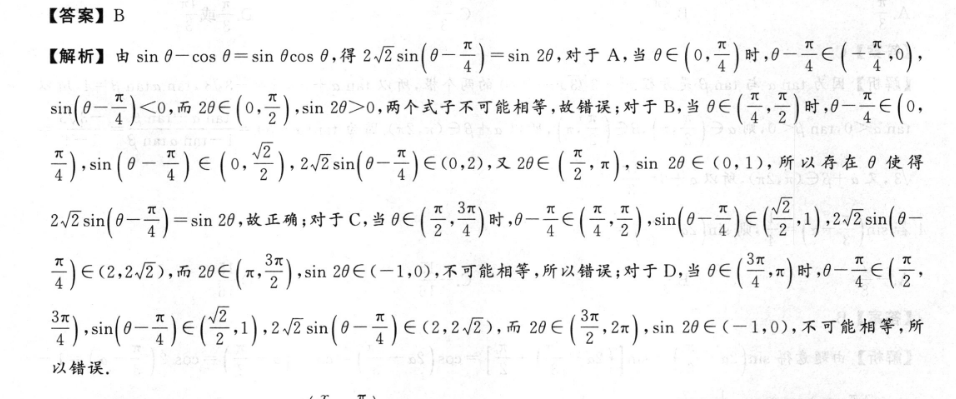 【答案】B
【解析】由 sin θ－cos θ＝sin θcos θ,得 2√2 sin(θ－π/4)＝sin 2θ,对于 A,当 θ∈(0,π/4)时,θ－π/4∈(－π/4,0),
sin(θ－π/4)＜0,而 2θ∈(0,π/2),sin 2θ＞0,两个式子不可能相等,故错误;对于 B,当 θ∈(π/4,π/2)时,θ－π/4∈(0,
π/4),sin(θ－π/4)∈(0,√2/2),2√2 sin(θ－π/4)∈(0,2),又 2θ∈(π/2,π),sin 2θ∈(0,1),所以存在 θ 使得
2√2 sin(θ－π/4)＝sin 2θ,故正确;对于 C,当 θ∈(π/2,3π/4)时,θ－π/4∈(π/4,π/2),sin(θ－π/4)∈(√2/2,1),2√2 sin(θ－
π/4)∈(2,2√2),而 2θ∈(π,3π/2),sin 2θ∈(－1,0),不可能相等,所以错误;对于 D,当 θ∈(3π/4,π)时,θ－π/4∈(π/2,
3π/4),sin(θ－π/4)∈(√2/2,1),2√2 sin(θ－π/4)∈(2,2√2),而 2θ∈(3π/2,2π),sin 2θ∈(－1,0),不可能相等,所
以错误.